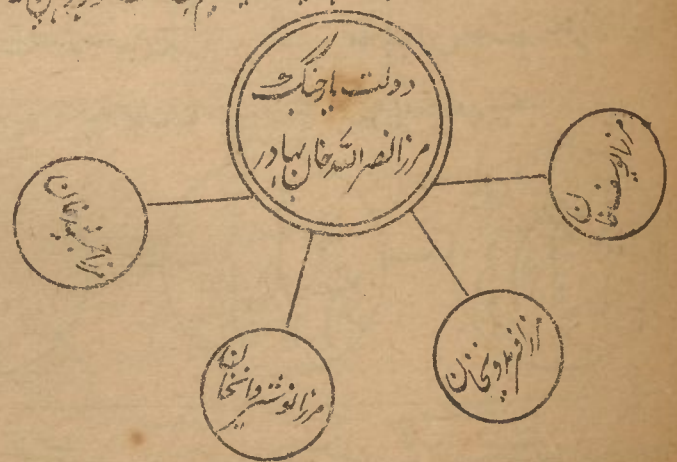 دولت یار جنگ
مرزا نصر اللہ خان بہادر
مرزا یوسف خان
مرزا فریدونخان
مرزا نوشیروانخان
مرزا جمشید خان